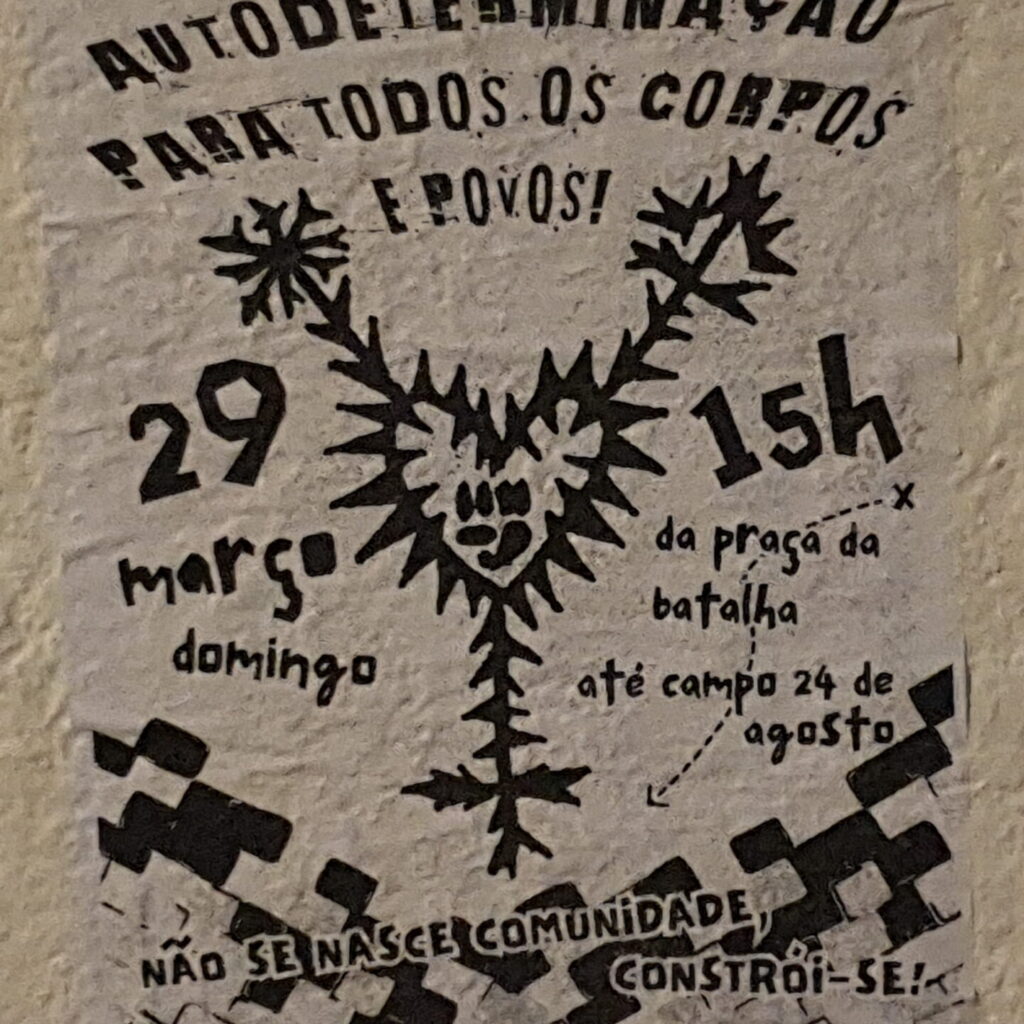 AUTODETERMINAÇÃO
PARA TODOS OS CORPOS
E POVOS!
29
março
domingo
15h
da praça da
batalha
até campo 24 de
agosto
NÃO SE NASCE COMUNIDADE,
CONSTRÓI-SE!